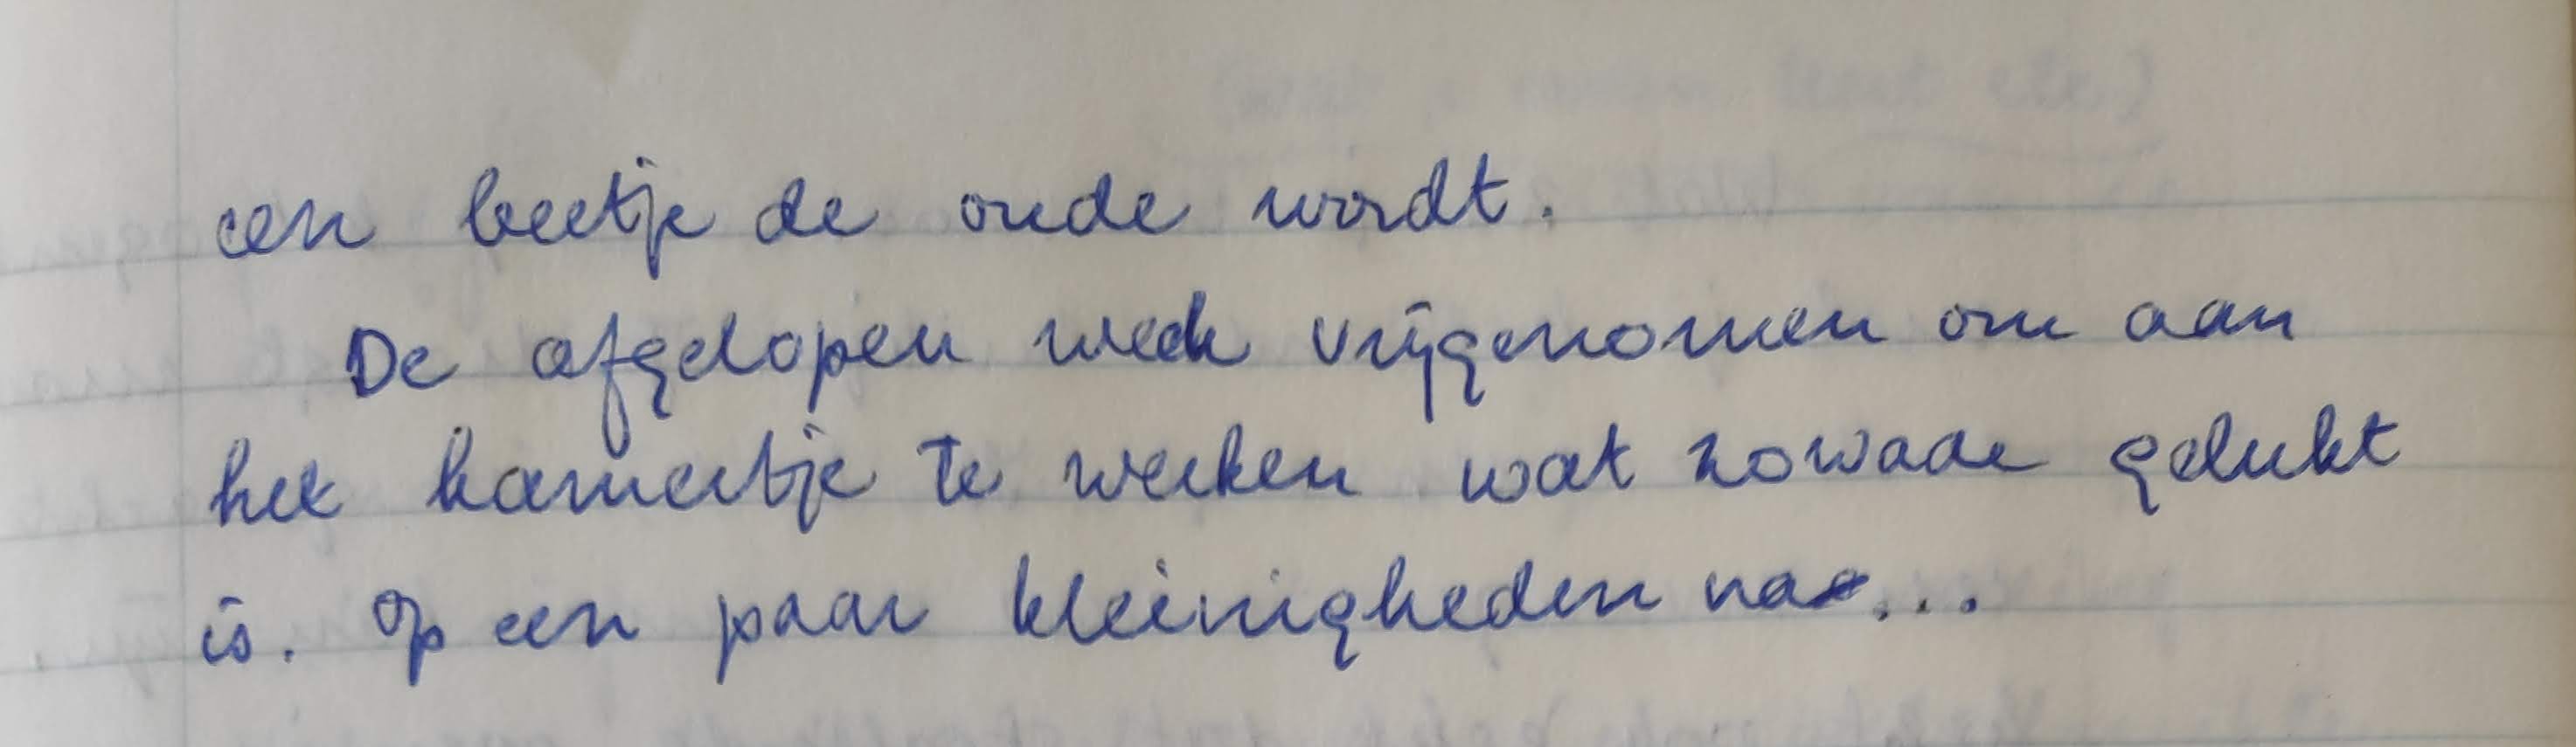 een beetje de oude wordt.
De afgelopen week vrijgenomen om aan
het kamertje te werken wat zowaar gelukt
is. Op een paar kleinigheden na...